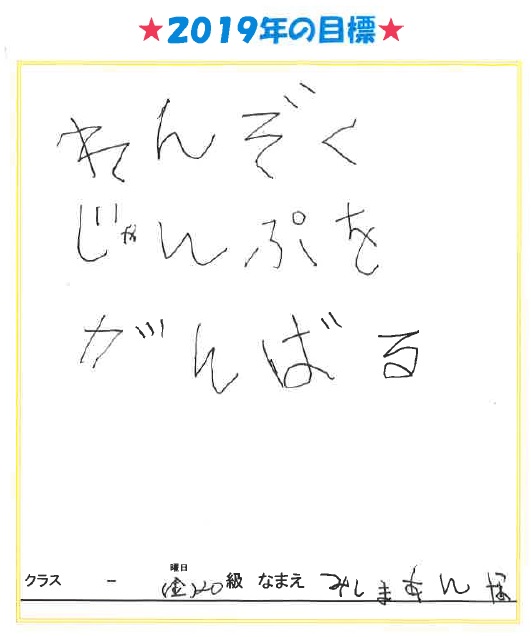 ★2019年の目標★
れんぞく
じゃんぷを
がんばる
クラス - 曜日 (金) 20級 なまえ みしまあん 様